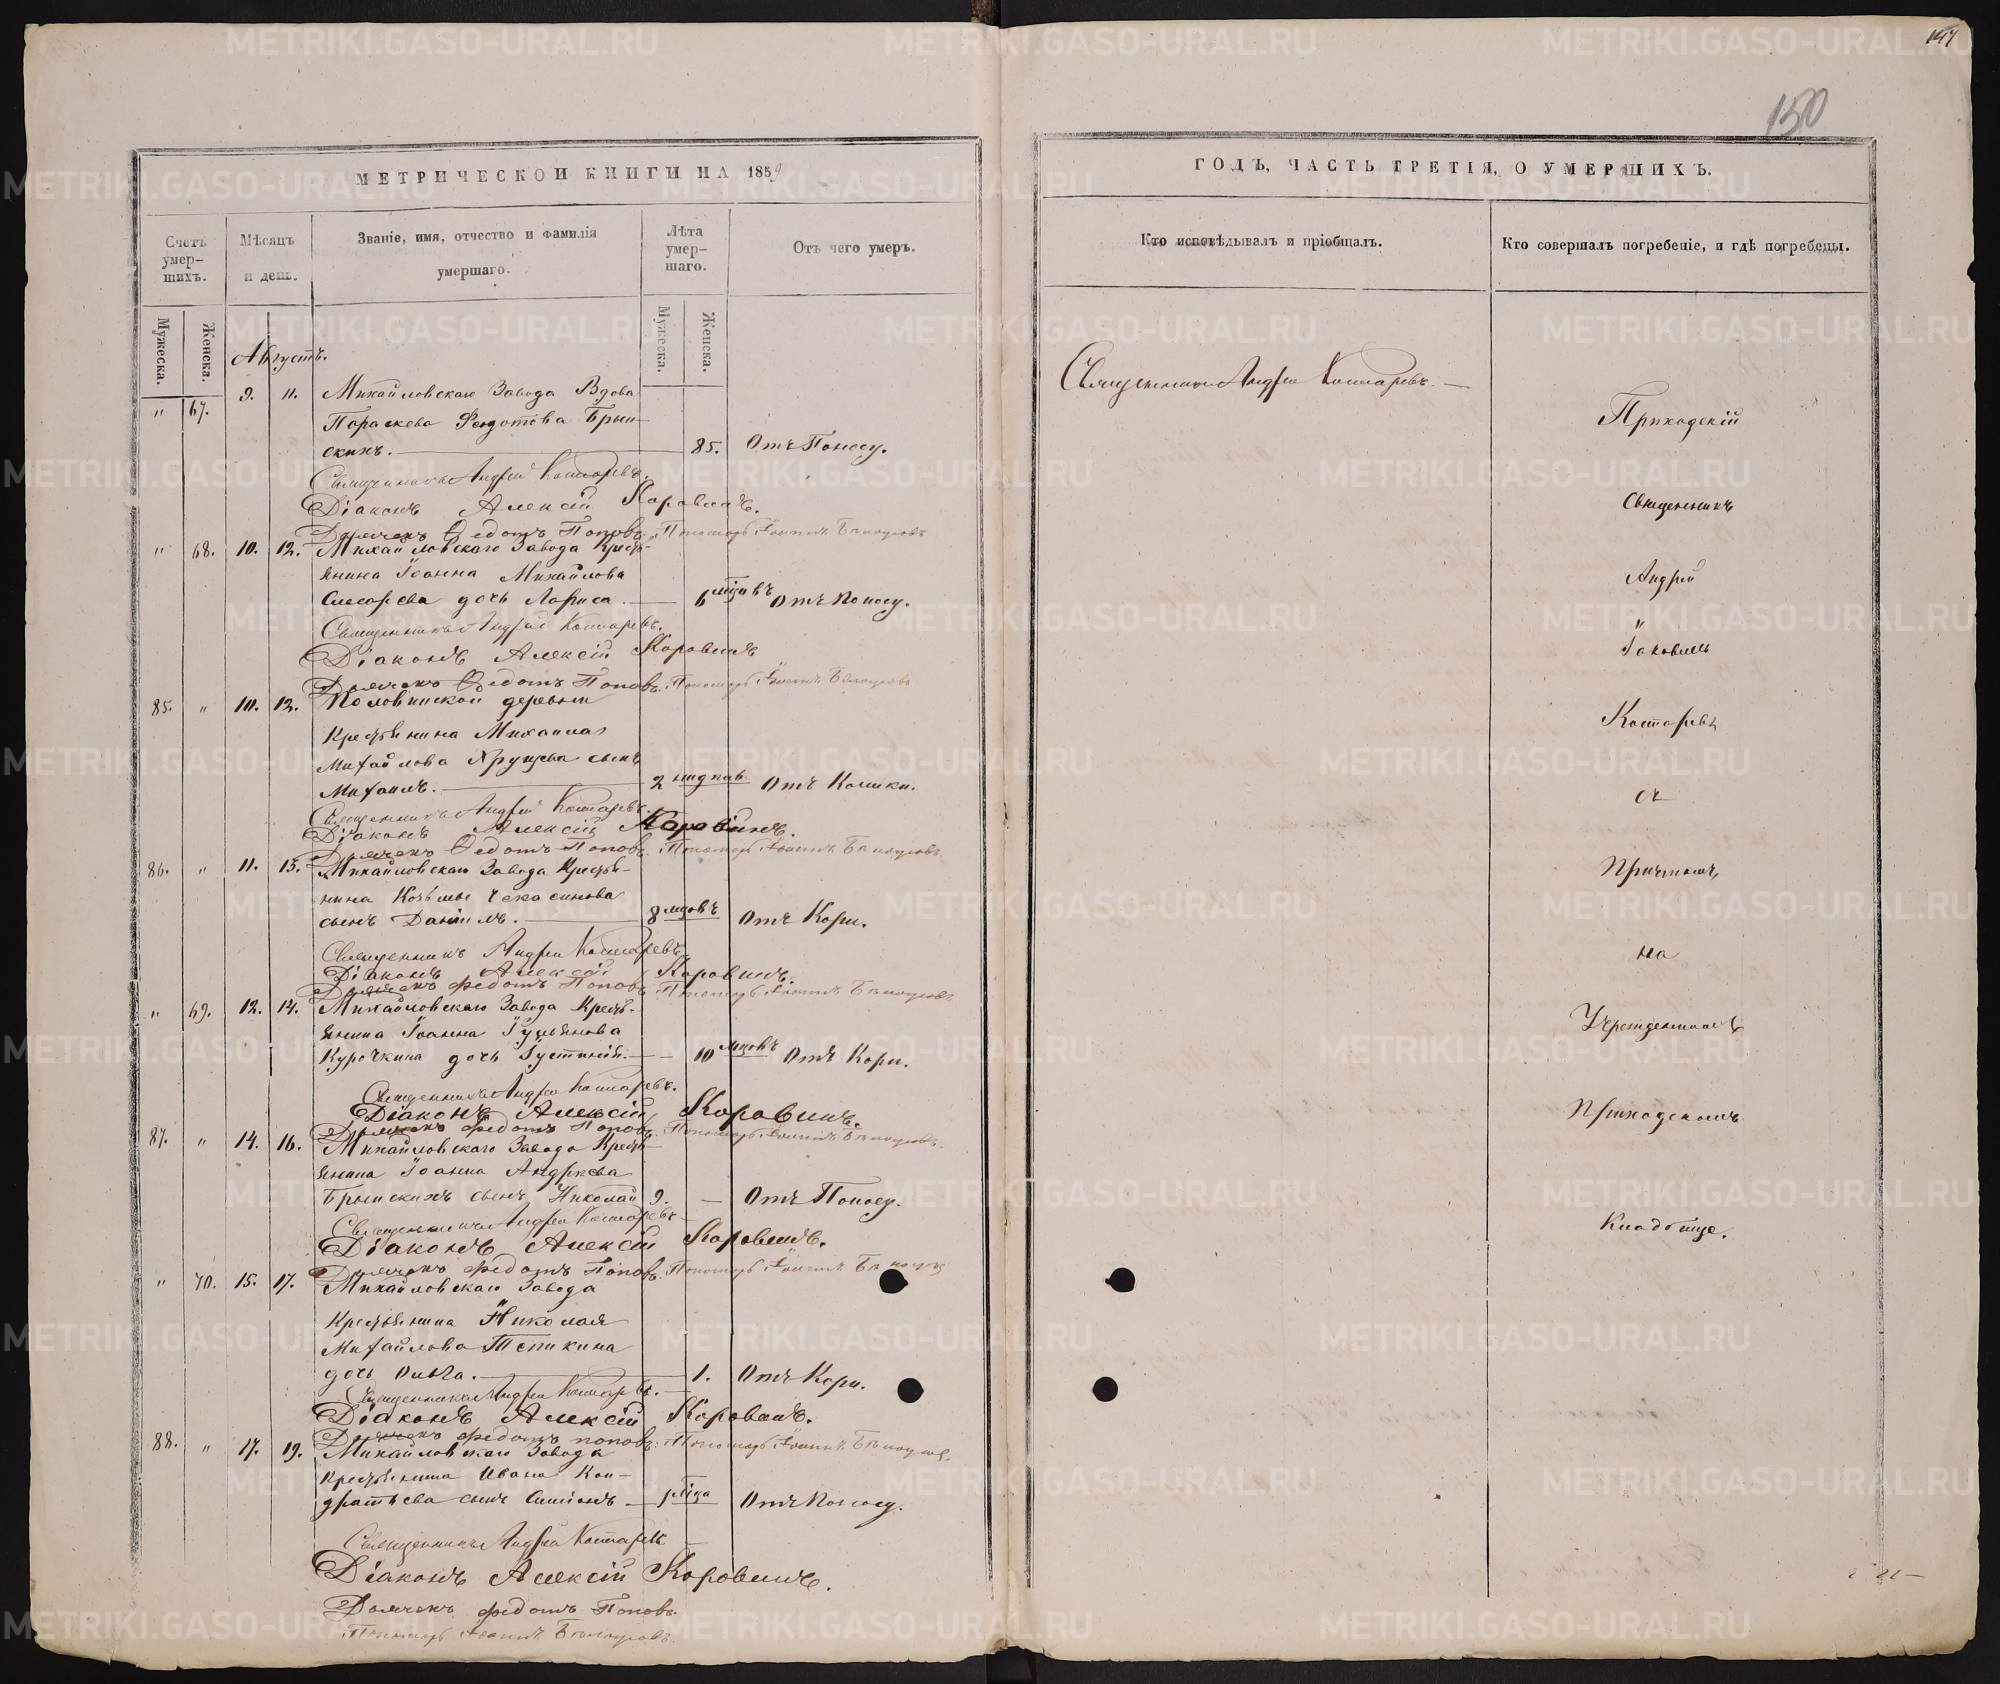 147
150
МЕТРИЧЕСКОЙ КНИГИ НА 1859
ГОДЪ, ЧАСТЬ ТРЕТІЯ, О УМЕРШИХЪ.
Счетъ умер-
шихъ.
Мѣсяцъ
и день.
Званіе, имя, отчество и фамилія
умершаго.
Лѣта
умер-
шаго.
Отъ чего умеръ.
Кто исповѣдывалъ и пріобщалъ.
Кто совершалъ погребеніе, и гдѣ погребены.
Мужеска.
Женска.
Мужеска.
Женска.
Августъ.
" 67. 9. 11. Михайловскаго Завода Вдова
Параскева Федотова Брын-
скихъ. 85. Отъ Поносу.
Священникъ Андрей Костаревъ.
Діаконъ Алексій Коровинъ.
Дьячекъ Федотъ Поповъ. Пономарь Іоаннъ Бѣлоусовъ
" 68. 10. 12. Михайловскаго Завода Кресть-
янина Іоанна Михайлова
Слесарева дочь Лариса 6 мѣсцовъ Отъ Поносу.
Священникъ Андрей Костаревъ.
Діаконъ Алексій Коровинъ
Дьячекъ Федотъ Поповъ. Пономарь Іоаннъ Бѣлоусовъ
85. " 10. 12. Половинской деревни
Крестьянина Михаила
Михайлова Хрущева сынъ
Михаилъ. 2 Отъ Колики.
Священникъ Андрей Костаревъ.
Діаконъ Алексій Коровинъ.
Дьячекъ Федотъ Поповъ. Пономарь Іоаннъ Бѣлоусовъ
86. " 11. 13. Михайловскаго Завода Крестья-
нина Козьмы Чекасинова
сынъ Даніилъ. 8 мѣсцовъ Отъ Кори.
Священникъ Андрей Костаревъ
Діаконъ Алексій Коровинъ.
Дьячекъ Федотъ Поповъ Пономарь Іоаннъ Бѣлоусовъ
" 69. 12. 14. Михайловскаго Завода Кресть-
янина Іоанна
Курочкина дочь Іустинія. 10 мѣсцовъ Отъ Кори.
Священникъ Андрей Костаревъ.
Діаконъ Алексій Коровинъ.
Дьячекъ Федотъ Поповъ Пономарь Іоаннъ Бѣлоусовъ
87. " 14. 16. Михайловскаго Завода Кресть-
янина Іоанна Андреева
Брынскихъ сынъ Николай 9. Отъ Поносу.
Священникъ Андрей Костаревъ
Діаконъ Алексій Коровинъ.
Дьячекъ Федотъ Поповъ. Пономарь Іоаннъ Бѣлоусов
" 70. 15. 17. Михайловскаго Завода
Крестьянина Николая
Михайлова Тепикина
дочь Ольга. 1. Отъ Кори.
Священникъ Андрей Костаревъ.
Діаконъ Алексій Коровинъ.
Дьячекъ Федотъ Поповъ. Пономарь Іоаннъ Бѣлоусовъ.
88. " 17. 19. Михайловскаго Завода
Крестьянина Ивана Кон-
дратьева сынъ Симіонъ 1 мѣца Отъ Поносу.
Священникъ Андрей Костаревъ
Діаконъ Алексій Коровинъ.
Дьячекъ Федотъ Поповъ.
Пономарь Іоаннъ Бѣлоусовъ.
Священникъ Андрей Костаревъ.
Приходскій
Священникъ
Андрей
Іаковлевъ
Костаревъ
съ
Причтомъ,
на
Учрежденномъ
Приходскомъ
Кладбище.
METRIKI.GASO-URAL.RU